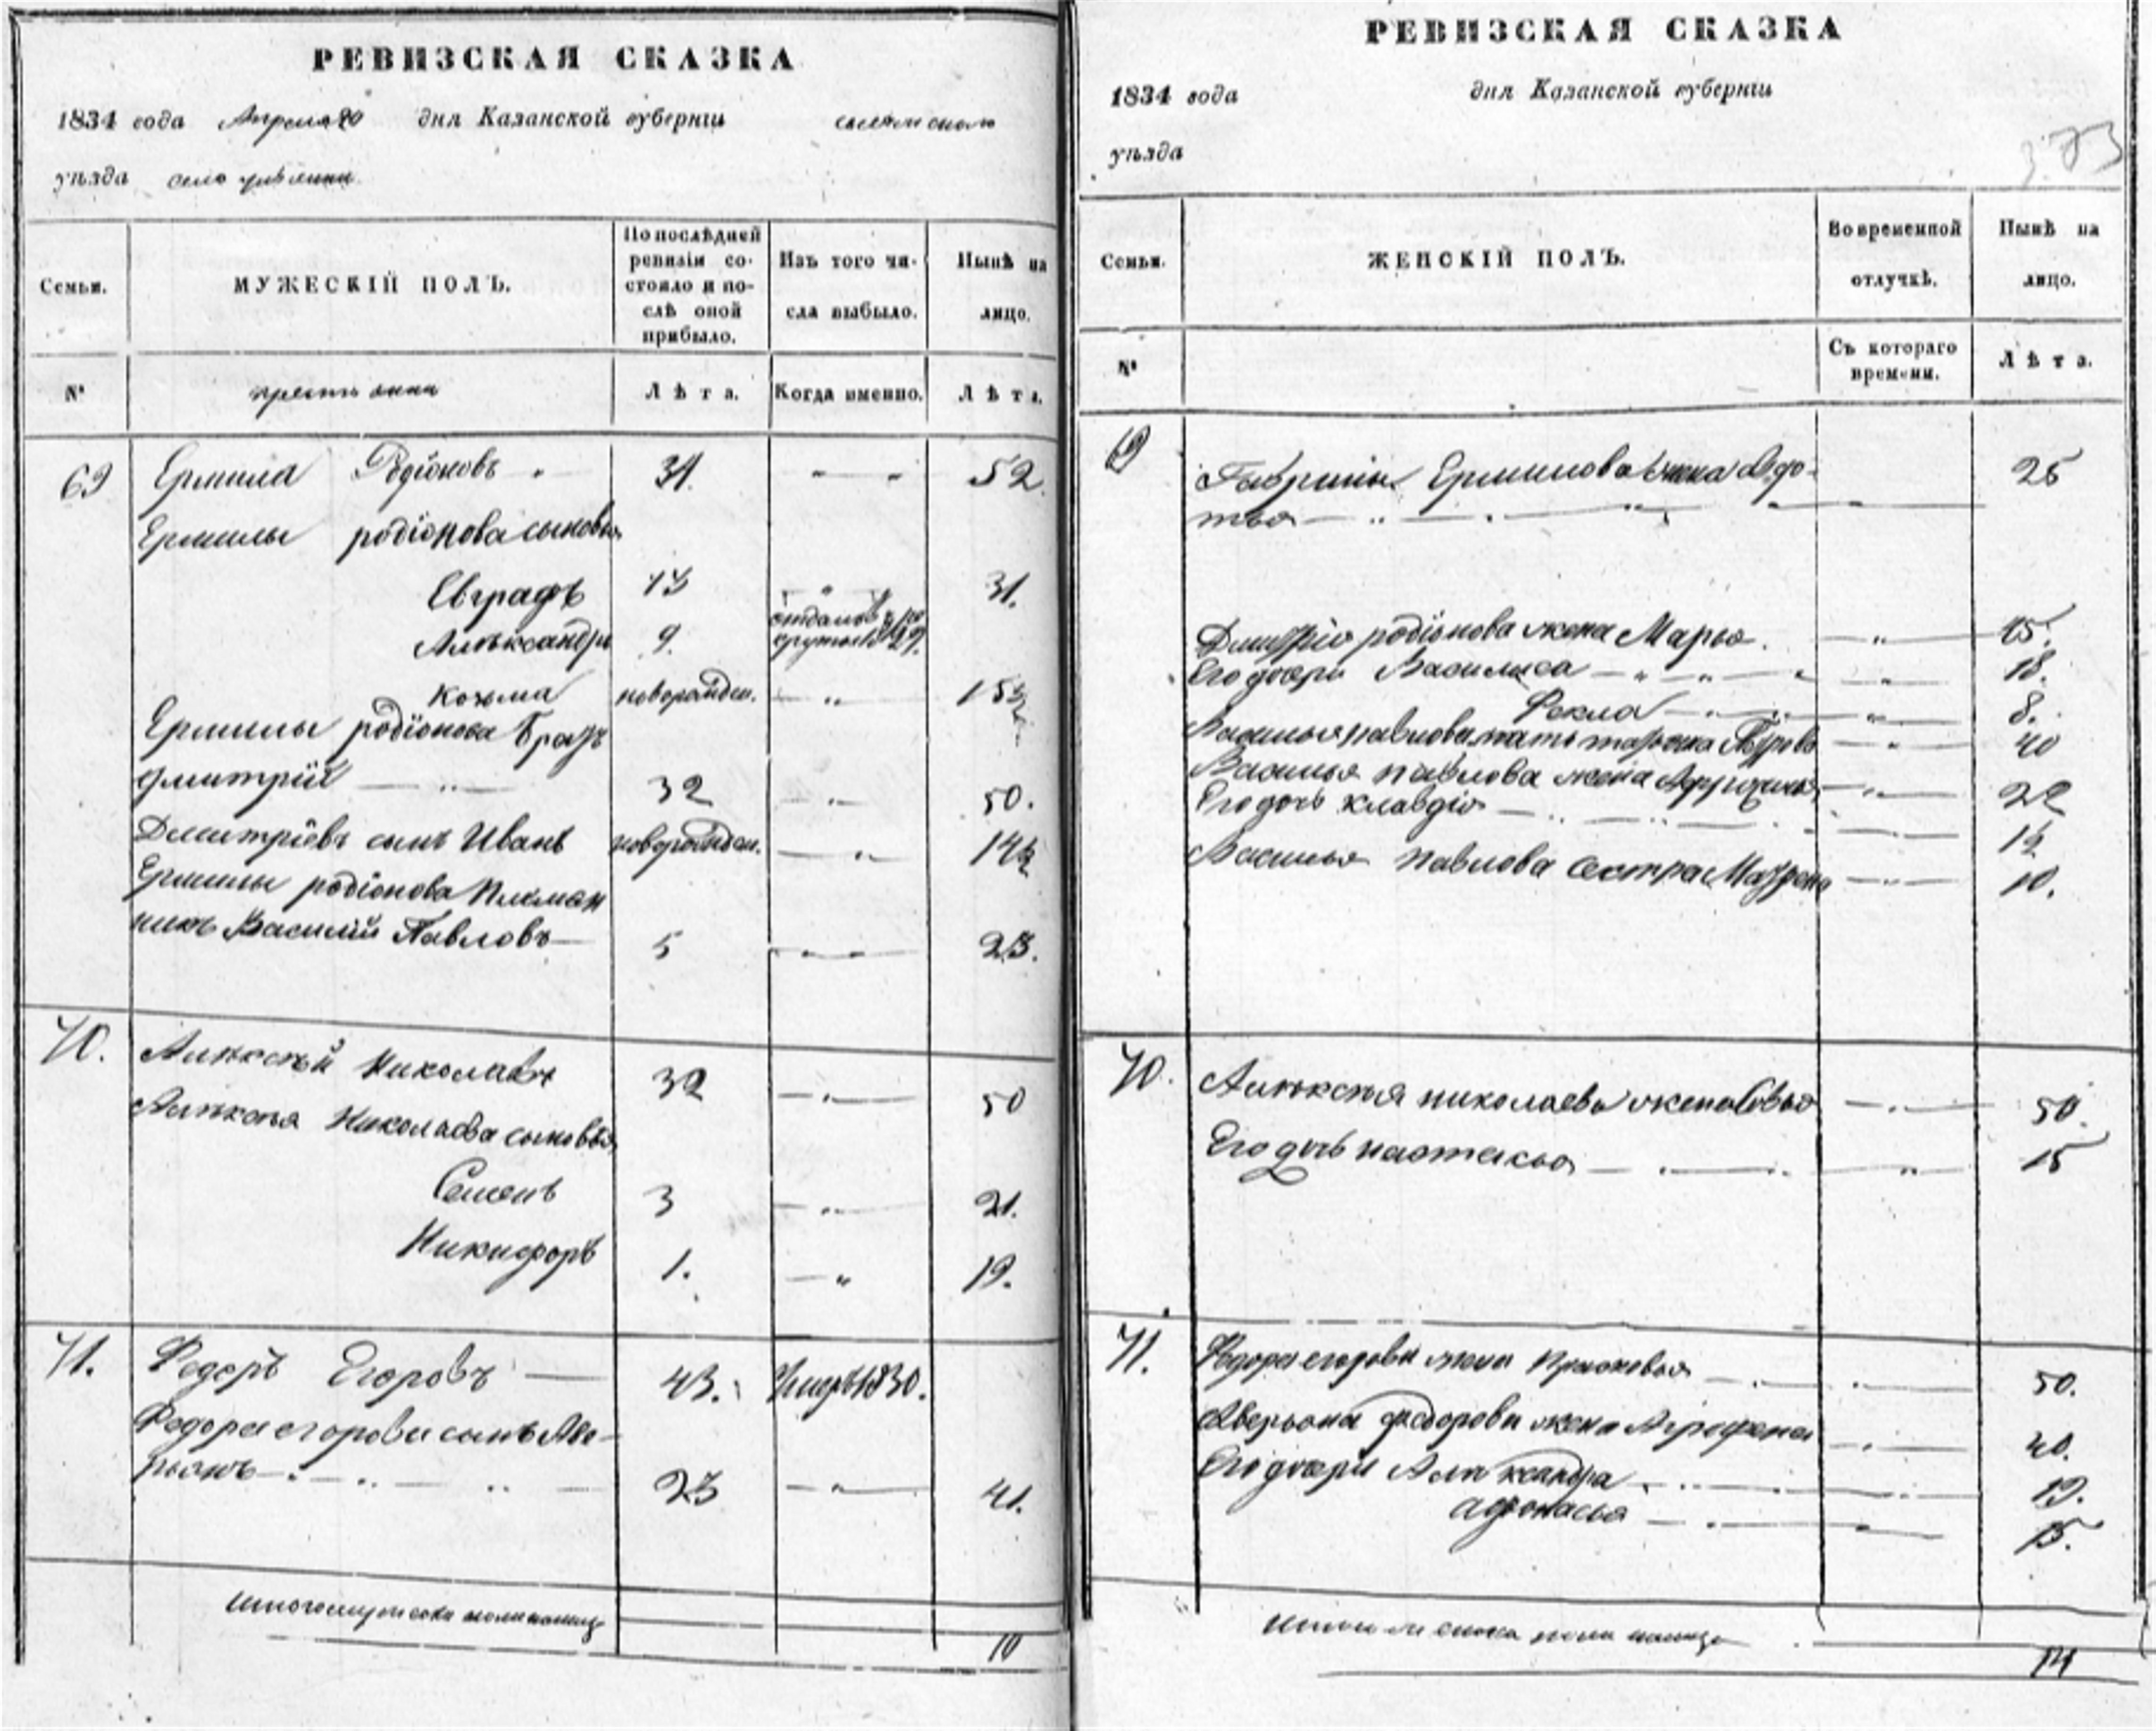 РЕВИЗСКАЯ СКАЗКА
1834 года Апреля 20 дня Казанской губерніи
уѣзда село
Семьи.
МУЖЕСКІЙ ПОЛЪ.
По послѣдней ревизіи состояло и послѣ оной прибыло.
Изъ того числа выбыло.
Нынѣ на лицо.
№
Лѣта.
Когда именно.
Лѣта.
69 Ермила Родіоновъ 34. 52
Ермилы родіонова сыновья
Евграфъ 13 31.
Алѣксандръ 9. отданъ в рекруты 1829.
Козма новорожден. 15½
Ермилы родіонова братъ
дмитрій 32 50.
Дмитріевъ сынъ Иванъ новорожден. 14½
Ермилы родіонова племян
никъ Василій Павловъ 5 23.
70. Алѣксѣй Николаевъ 32 50
Алѣксѣя Николаева сыновья
Семенъ 3 21.
Никифоръ 1. 19.
71. Федоръ Егоровъ 43. Умеръ 1830.
Федора егорова сынъ Аве-
рьянъ 23 41.
Итого мужеска пола налицо
10
РЕВИЗСКАЯ СКАЗКА
1834 года дня Казанской губерніи
уѣзда
373
Семьи.
ЖЕНСКІЙ ПОЛЪ.
Во временной отлучкѣ.
Нынѣ на лицо.
№
Съ котораго времени.
Лѣта.
69 Ермилова жена Авдо-
тья 25
Дмитрія родіонова жена Марья. 45.
Его дочери Василиса 18.
Фекла 8.
Василья павлова мать 40
Василья павлова жена 22
Его дочь клавдія 1½
Василья павлова сестра Матрена 10.
70. Алѣксѣя николаева жена Софья 50.
Его дочь настасья 15
71. Федора егорова жена Прасковья 50.
Аверьяна федорова жена Аграфена 40.
Его дочери Алѣксандра 19.
афонасья 15.
Итого женска пола налицо
14